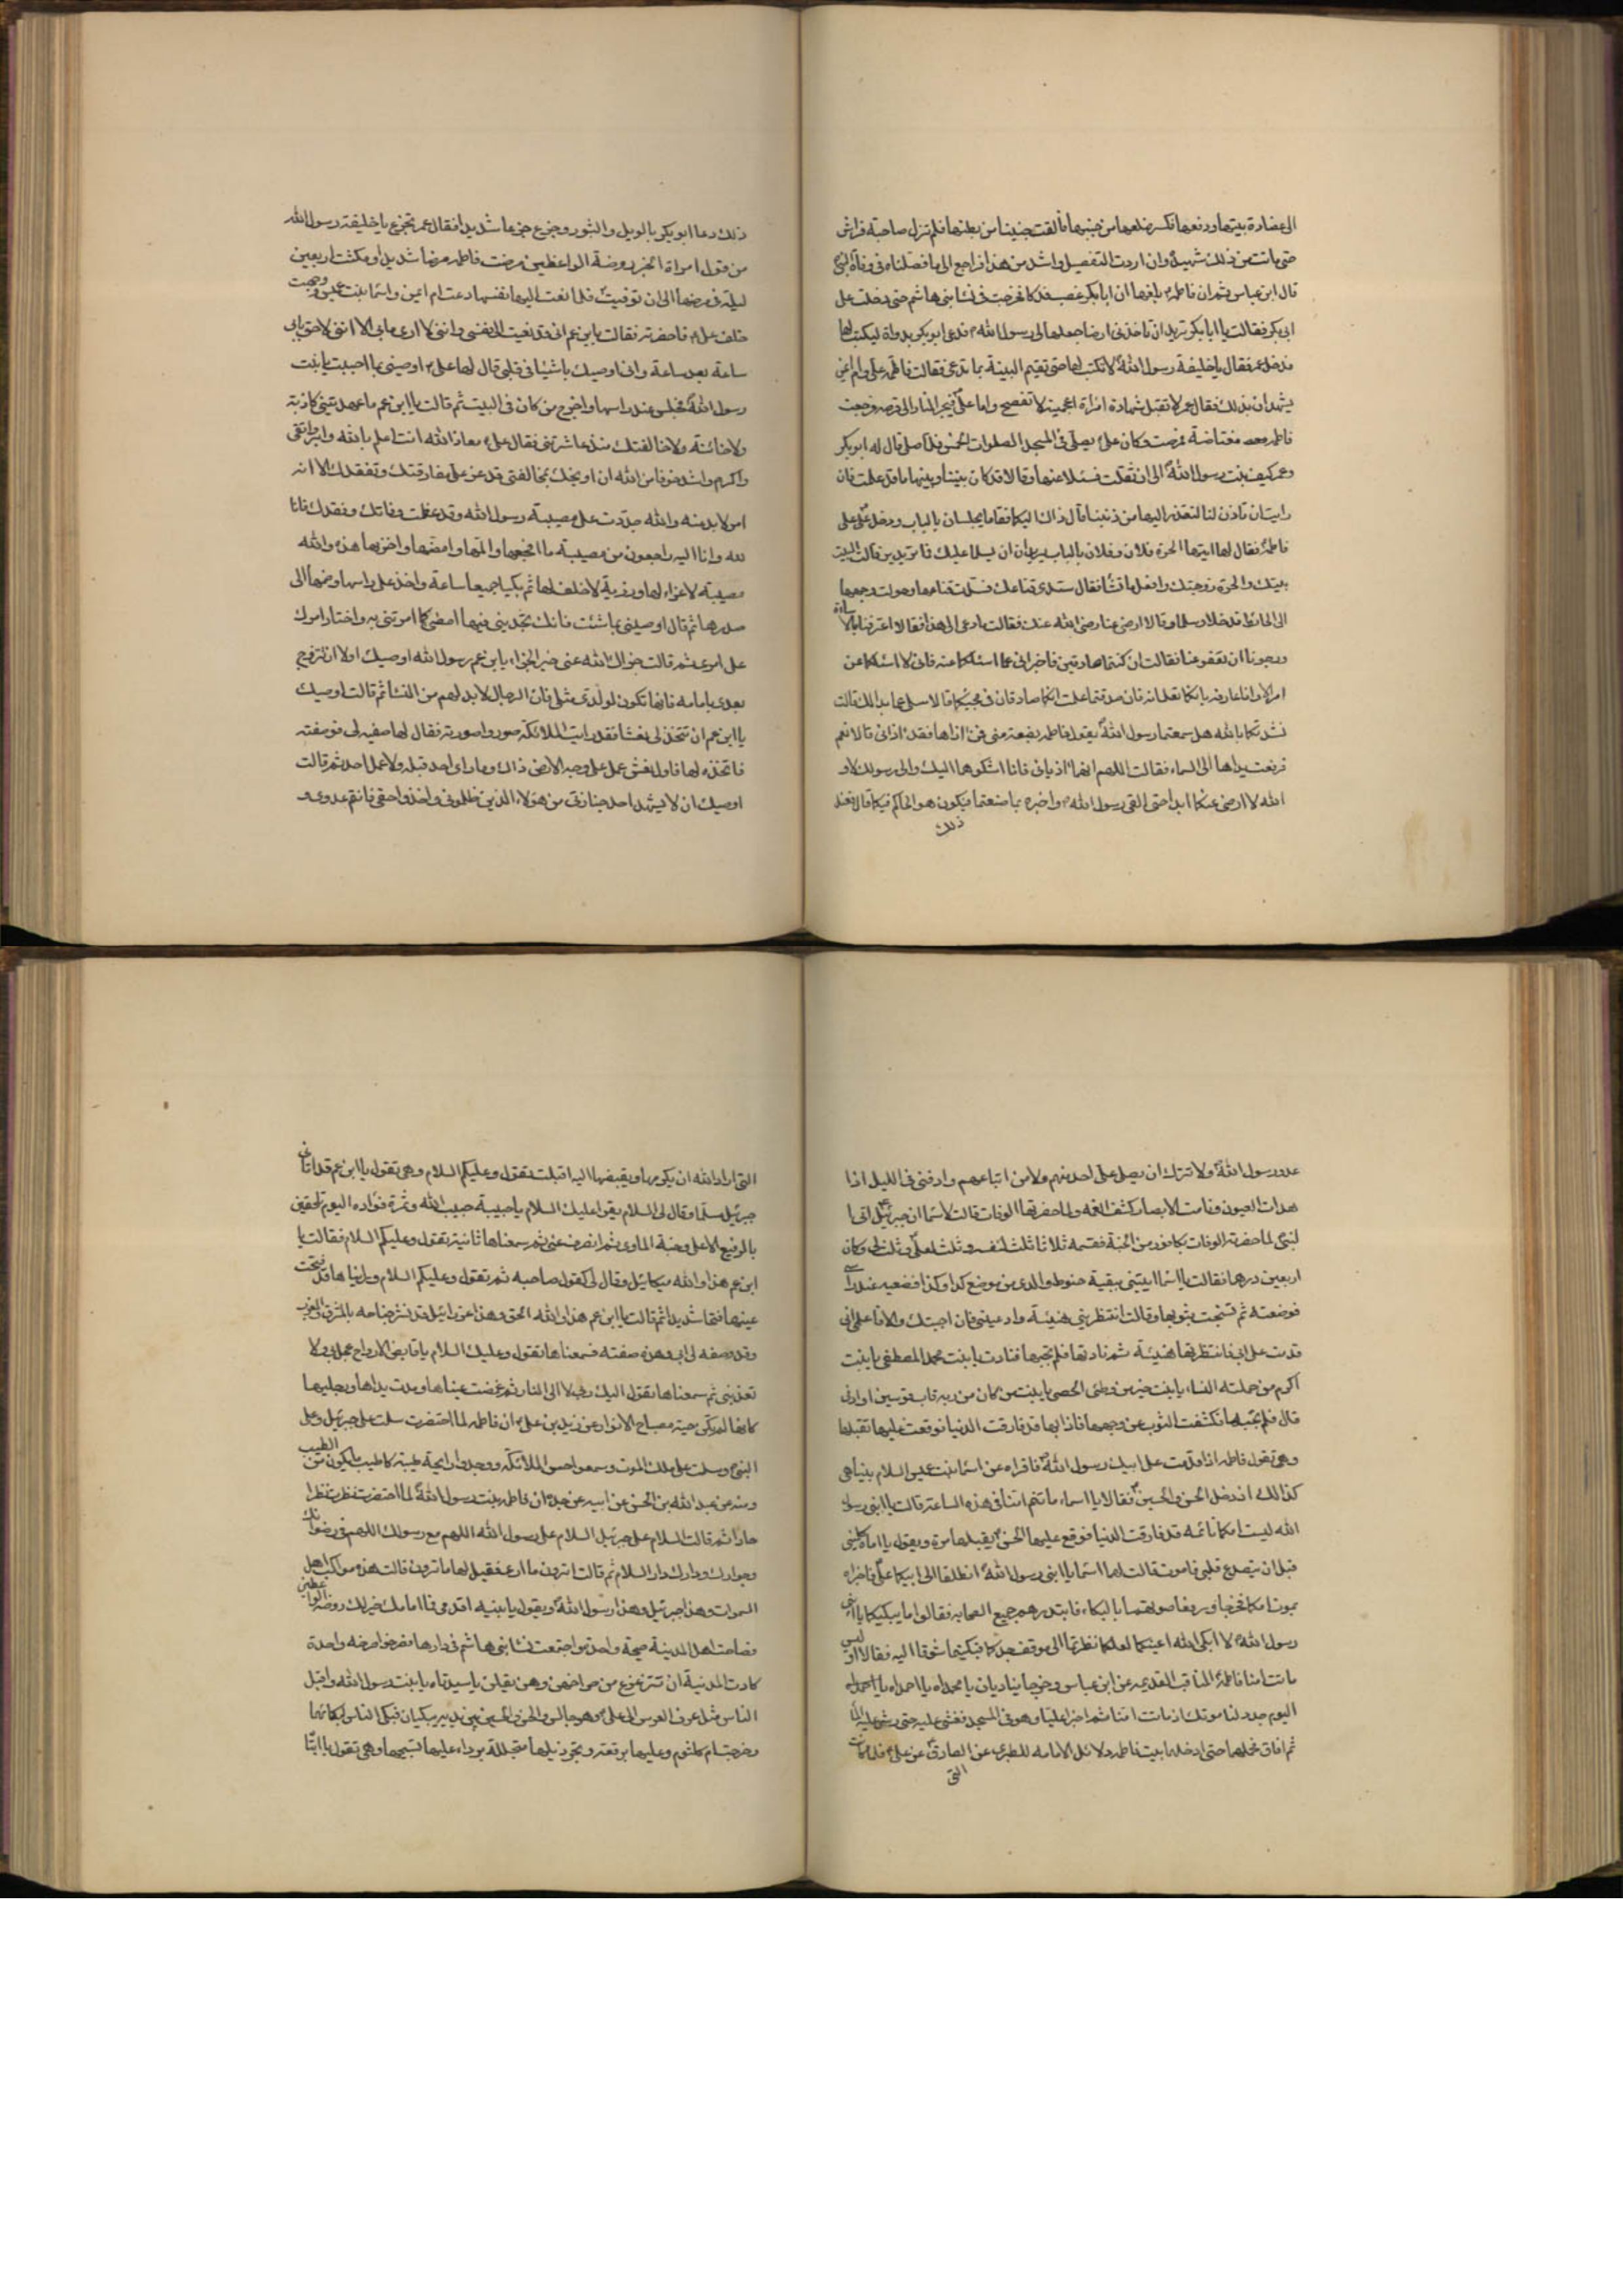 الى عضادة بيتها ودفعها فكسر ضلعها من جنبها فألقت جنينا من بطنها فلم تزل صاحبة فراش
حتى ماتت من ذلك شهيدة وان اردت التفصيل واشد من هذا فراجع الى ما فصلناه فى وفاة النبى
قال ابن عباس ثم ان فاطمة بلغها ان ابابكر غصب فدكا فخرجت فى نسا بنى هاشم حتى دخلت على
ابى بكر فقالت يا ابا بكر تريد ان تاخذ منى ارضا جعلها لى رسول الله فدعى ابو بكر بدواة ليكتب لها
فدخل عمر فقال يا خليفة رسول الله لا تكتب لها حتى تقيم البينة بما تدعى فقالت فاطمة على وام ايمن
يشهدان بذلك فقال عمر لا تقبل شهادة امراة اعجمية لا تفصح واما على فيجر النار الى قرصه فرجعت
فاطمه مغتاضة فمرضت وكان على يصلى فى المسجد الصلوات الخمس فلما صلى قال له ابو بكر
وعمر كيف بنت رسول الله الى ان ثقلت فسئلا عنها وقالا قد كان بيننا وبينها ما قد علمت فان
رايت ان تاذن لنا لنعتذر اليها من ذنبنا قال ذاك اليكما فقاما يجلسان بالباب ودخل على على
فاطمة فقال لها ايتها الحرة فلان وفلان بالباب يريدان ان يسلما عليك فما تريدين قالت البيت
بيتك والحرة زوجتك وافعل ما تشا فقال سدى قناعك فسدت قناعها وحولت وجهها
الى الحائط فدخلا وسلما وقالا ارضى عنا رضى الله عنك فقالت ما دعى الى هذا فقالا اعترفنا بالاساءة
ورجونا ان تعفو عنا فقالت ان كنتما صادقين فاخبرانى عما اسئلكما عنه فانى لا اسئلكما عن
امر الا وانا عارفه بانكما تعلمانه فان صدقتما علمت انكما صادقان فى مجيئكما قالا سلى عما بدا لك قالت
نشدتكما بالله هل سمعتما رسول الله يقول فاطمه بضعة منى فمن اذاها فقد اذانى قالا نعم
فرفعت يداها الى السماء فقالت اللهم انهما اذيانى فانا اشكوهما اليك والى رسولك لا و
الله لا ارضى عنكما ابدا حتى القى رسول الله واخبره بما صنعتما فيكون هو الحاكم فيكما قال فعند
ذلك
ذلك دعا ابو بكر بالويل والثبور وجزع جزعا شديدا فقال عمر تجزع يا خليفة رسول الله
من قول امراة الخبر روضة الواعظين مرضت فاطمه مرضا شديدا ومكثت اربعين
ليلة فى مرضها الى ان توفيت فلما نعت اليها نفسها دعت ام ايمن واسما بنت عميس ووجهت
خلف على فاحضرته فقالت يابن عم انى قد نعيت الى نفسى واننى لا ارى ما بى الا اننى لاحق بابى
ساعة بعد ساعة وانى اوصيك باشيا فى قلبى قال لها على اوصينى بما احببت يا بنت
رسول الله فجلس عند راسها واخرج من كان فى البيت ثم قالت يا ابن عم ما عهدتينى كاذبة
ولا خائنة ولا خالفتك منذ عاشرتنى فقال على معاذ الله انت اعلم بالله وابر واتقى
واكرم واشد خوفا من الله ان اوبخك بمخالفتى قد عز على مفارقتك وتفقدك الا انه
امر لا بد منه والله جددت على مصيبة رسول الله وقد عظمت وفاتك وفقدك فانا
لله وانا اليه راجعون من مصيبة ما افجعها والمها وامضها واحزنها هذه والله
مصيبة لا عزاء لها ورزية لا خلف لها ثم بكيا جميعا ساعة واخذ على راسها وضمها الى
صدره ثم قال اوصينى بما شئت فانك تجدينى فيها امضى كما امرتنى به واختار امرك
على امرى ثم قالت جزاك الله عنى خير الجزاء يابن عم رسول الله اوصيك اولا ان تتزوج
بعدى بامامه فانها تكون لولدى مثلى فان الرجال لا بد لهم من النسا ثم قالت اوصيك
يا ابن عم ان تتخذ لى نعشا فقد رايت الملائكة صوروا صورته فقال لها صفيه لى فوصفته
فاتخذه لها فاول نعش عمل على وجه الارض ذاك وما راى احد قبله ولا عمل احد ثم قالت
اوصيك ان لا يشهد احد جنازتى من هؤلاء الذين ظلمونى واخذوا حقى فانهم عدوى و
عدو رسول الله ولا تترك ان يصلى على احد منهم ولا من اتباعهم وادفنى فى الليل اذا
هدات العيون ونامت الابصار كشف الغمه ولما حضرتها الوفات قالت لاسما ان جبرئيل اتى ا
لنبى لما حضرته الوفات بكافور من الجنة فقسمه ثلاثا ثلث لنفسه وثلث لعلى وثلث لى وكان
اربعين درهما فقالت يا اسما ايتينى ببقية حنوط والدى من موضع كذا وكذا فضعيه عند راسى
فوضعته ثم تسجت بثوبها وقالت انتظرينى هنيئة وادعينى فان اجبتك والا فاعلمى انى
قدمت على ابى فانتظرتها هنيئة ثم نادتها فلم تجبها فنادت يا بنت محمد المصطفى يا بنت
اكرم من حملته النساء يا بنت خير من وطئ الحصى يا بنت من كان من ربه قاب قوسين او ادنى
قال فلم تجبها فكشفت الثوب عن وجهها فاذا بها قد فارقت الدنيا فوقعت عليها تقبلها
وهى تقول فاطمه اذا قدمت على ابيك رسول الله فاقراه عن اسما بنت عميس السلام بنيا هى
كذالك اذ دخل الحسن والحسين فقالا يا اسماء ما تنم امنا فى هذه الساعة قالت يا ابنى رسول
الله ليست امكما نائمة قد فارقت الدنيا فوقع عليها الحسن يقبلها مرة ويقول يا اماه كلمينى
قبل ان يتصدع قلبى فاموت قالت لهما اسما يا ابنى رسول الله انطلقا الى ابيكما على فاخبراه
بموت امكما فخرجا ورفعا صوتهما بالبكاء فابتدرهم جميع الصحابه فقالوا ما يبكيكما يا ابنى
رسول الله لا ابكى الله اعينكما لعلكما نظرتما الى موقف جدكما فبكيتما شوقا اليه فقالا اوليس
ماتت امنا فاطمة المناقب القديمه عن ابن عباس وخرجا يناديان يا محمداه يا احمداه
اليوم جدد لنا موتك اذ ماتت امنا ثم اخبرا عليا وهو فى المسجد فغشى عليه حتى رش عليه الما
ثم افاق فحملهما حتى ادخلهما بيت فاطمه دلائل الامامه للطبرى عن الصادق عن على فلما كانت
التى
التى اراد الله ان يكرمها ويقبضها اليه اقبلت تقول وعليكم السلام وهى تقول يا ابن عم قد اتانى
جبرئيل مسلما وقال لى السلام يقرا عليك السلام يا حبيبة حبيب الله وثمرة فؤاده اليوم تلحقين
بالرفيع الاعلى وجنة الماوى ثم انصرف عنى ثم سمعناها ثانية تقول وعليكم السلام فقالت يا
ابن عم هذا والله ميكائيل وقال لى كقول صاحبه ثم تقول وعليكم السلام وراينا ها قد فتحت
عينها فتحا شديدا ثم قالت يا ابن عم هذا والله الحق وهذا عزرائيل قد نشر جناحه بالمشرق والمغرب
وقد وصفه لى ابى وهذه صفته فسمعناها تقول وعليك السلام يا قابض الارواح عجل بى ولا
تعذبنى ثم سمعناها تقول اليك ربى لا الى النار ثم غمضت عيناها ومدت يداها ورجليها
كانها لم تكن حية مصباح الانوار عن زيد بن على ان فاطمه لما احتضرت سلمت على جبرئيل وعلى
النبى وسلمت على ملك الموت وسمعوا حس الملائكة ووجدوا رايحة طيبة كاطيب ما يكون من الطيب
وعنه عن عبد الله بن الحسن عن ابيه عن جده ان فاطمه بنت رسول الله لما احتضرت نظرت نظرا
حادا ثم قالت السلام على جبرئيل السلام على رسول الله اللهم مع رسولك اللهم فى رضوانك
وجوارك ودارك دار السلام ثم قالت اترون ما ارى فقيل لها ما ترون قالت هذه مواكب اهل
السموات وهذا جبرئيل وهذا رسول الله ويقول يا بنيه اقدمى فما امامك خير لك روضة الواعظين
فصاحت اهل المدينة صيحة واحدة واجتمعت نسا بنى هاشم فى دارها فصرخوا صرخه واحدة
كادت المدينة ان تتزعزع من صراخهن وهن يقلن يا سيدتاه يا بنت رسول الله واقبل
الناس مثل عرف الفرس الى على وهو جالس والحسن والحسين بين يديه يبكيان فبكى الناس لبكائهما
وخرجت ام كلثوم وعليها برقعة وتجر ذيلها متجللة برداء عليها تسبجها وهى تقول يا ابتا